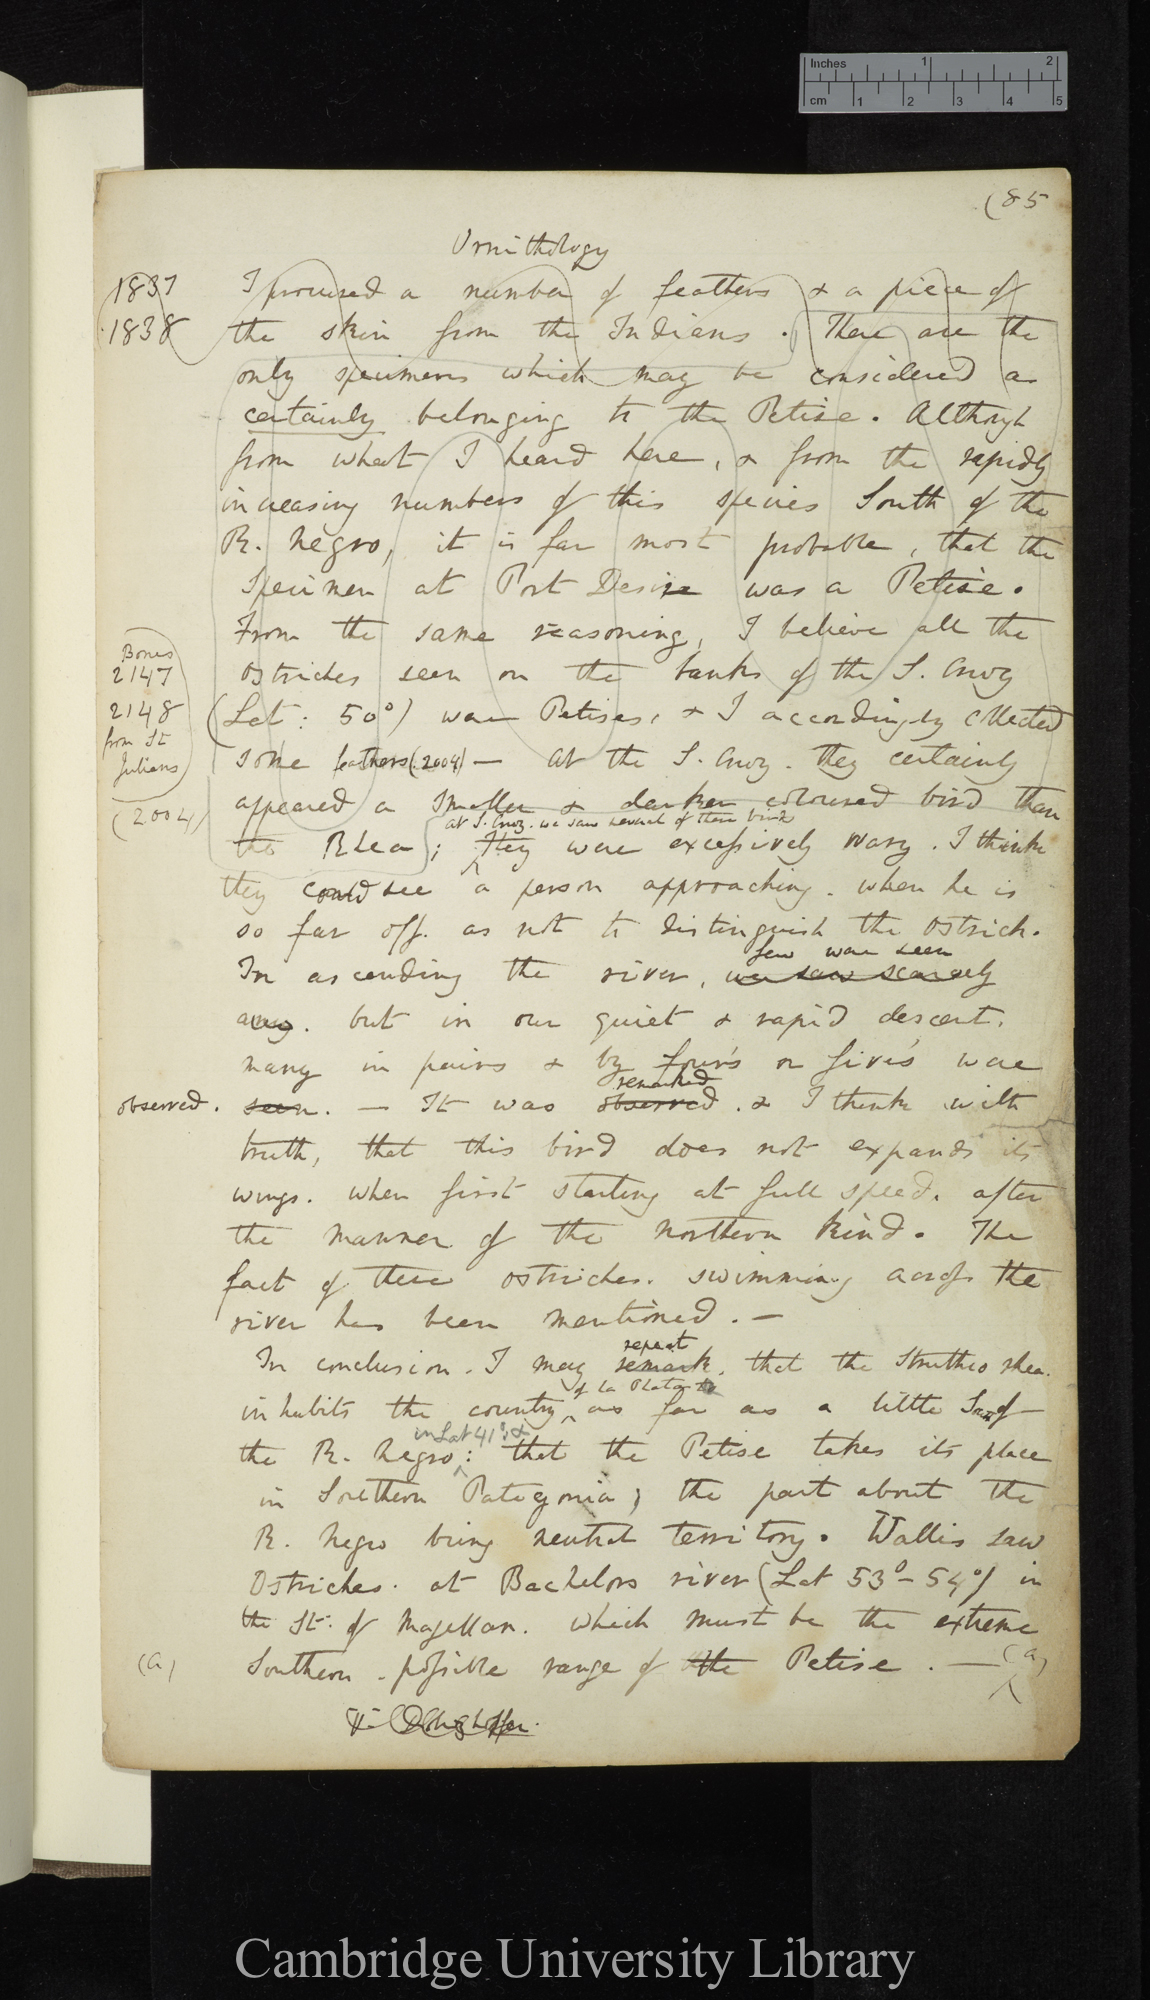 Inches 1 2
cm 1 2 3 4 5
(85
Ornithology
1837 I procured a number of feathers & a piece of
1838 the skin from the Indians. These are the
only specimens which may be considered as
certainly belonging to the Petise. Although
from what I heard here, & from the rapidly
increasing numbers of this species South of the
R. Negro, it is far most probable, that the
Specimen at Port Desire was a Petise.
From the same reasoning, I believe all the
Bones
2147 Ostriches seen on the banks of the S. Cruz
2148 (Lat: 50°) were Petises, & I accordingly collected
from St
Julians some feathers (2004) — At the S. Cruz. they certainly
(2004) appeared a smaller & darker coloured bird than
at S. Cruz. we saw several of these birds
the Rhea; They were excessively wary. I think
they could see a person approaching. when he is
so far off. as not to distinguish the Ostrich.
few were seen
In ascending the river, we saw scarcely
any. but in our quiet & rapid descent.
many in pairs & by four's or five's were
remarked
observed. seen. — It was observed. & I think with
truth, that this bird does not expand its
wings. when first starting at full speed. after
the manner of the northern kind. The
fact of these ostriches. swimming across the
river has been mentioned. —
repeat
In conclusion. I may remark. that the Struthio rhea.
of La Plata
inhabits the country, as far as a little S. of
in Lat 41° &
the R. Negro: that the Petise takes its place
in Southern Patagonia; the part about the
R. Negro being neutral territory. Wallis saw
Ostriches. at Bachelors river (Lat 53°-54°) in
the St: of Magellan. which must be the extreme
(a) Southern possible range of the Petise. — (a)
Cambridge University Library